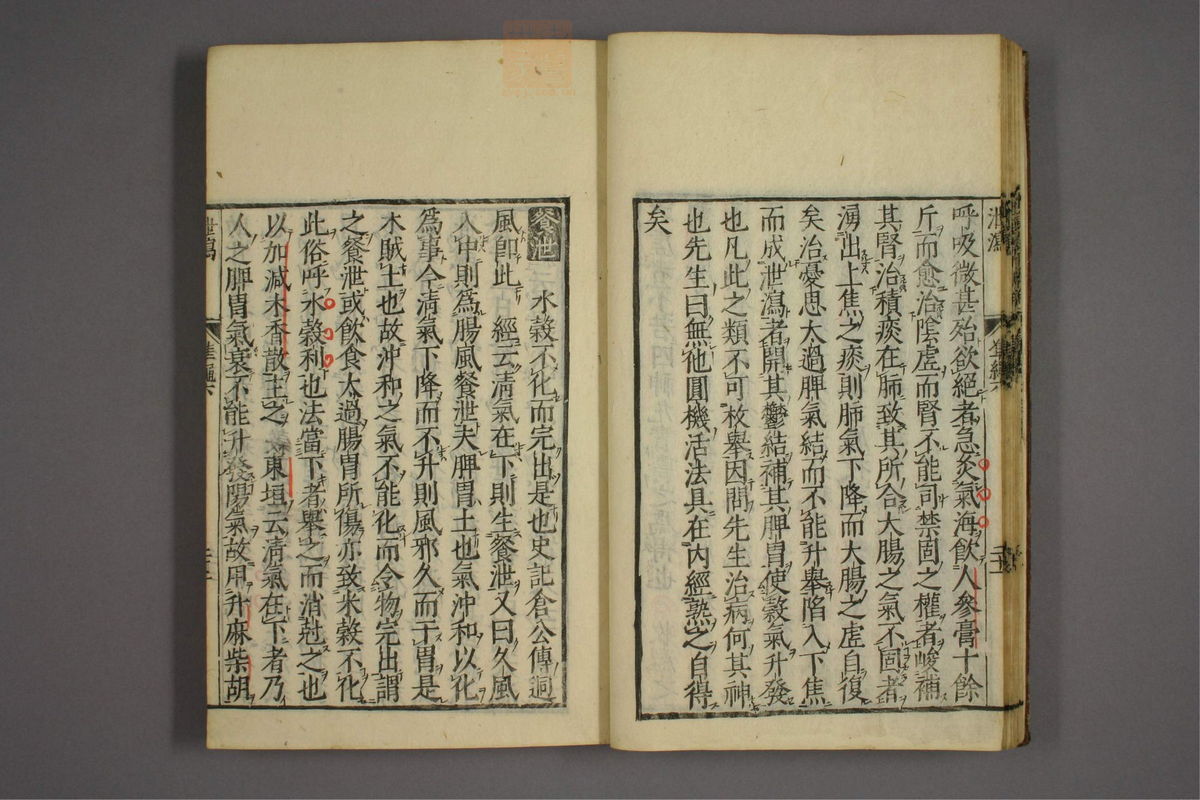 呼吸微甚殆欲絕者急灸氣海飲人參膏十餘
斤而愈治陰虛而腎不能司禁固之權者峻補
其腎治積痰在肺致其所合大腸之氣不固者
湧出上焦之痰則肺氣下降而大腸之虛自復
矣治憂思太過脾氣結而不能升舉陷入下焦
而成泄瀉者開其鬱結補其脾胃使穀氣升發
也凡此之類不可枚舉因問先生治病何其神
也先生曰無他圓機活法具在內經熟之自得
矣
飧泄 水穀不化而完出是也史記倉公傳迵
風卽此 經云清氣在下則生飧泄又曰久風
入中則為腸風飧泄夫脾胃土也氣沖和以化
為事今清氣下降而不升則風邪久而干胃是
木賊土也故沖和之氣不能化而令物完出謂
之飧泄或飲食太過腸胃所傷亦致米穀不化
此俗呼水穀利也法當下者舉之而消尅之也
以加減木香散主之 東垣云清氣在下者乃
人之脾胃氣衰不能升發陽氣故用升麻柴胡